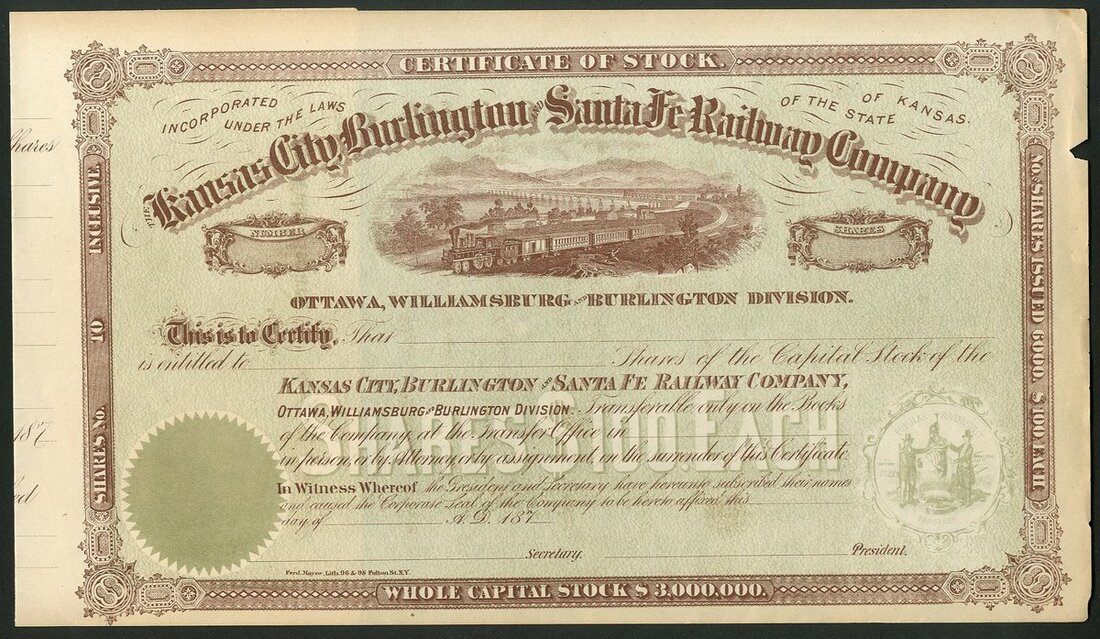 CERTIFICATE OF STOCK.
INCORPORATED UNDER THE LAWS OF THE STATE OF KANSAS.
THE Kansas City, Burlington AND Santa Fe Railway Company
NUMBER
SHARES
OTTAWA, WILLIAMSBURG AND BURLINGTON DIVISION.
This is to Certify, That
is entitled to Shares of the Capital Stock of the
KANSAS CITY, BURLINGTON AND SANTA FE RAILWAY COMPANY,
OTTAWA, WILLIAMSBURG AND BURLINGTON DIVISION. Transferable only on the Books
of the Company, at the Transfer Office in
in person, or by Attorney, or by assignment, on the surrender of this Certificate.
SHARES $100. EACH
In Witness Whereof the President and Secretary have hereunto subscribed their names
and caused the Corporate Seal of the Company to be hereto affixed this
day of A.D. 187
Secretary. President.
Ferd. Mayer, Lith. 96 & 98 Fulton St. N.Y.
WHOLE CAPITAL STOCK $ 3,000,000.
SHARES No. TO INCLUSIVE.
NO. SHARES ISSUED 6000. $100. EACH.
hares
187